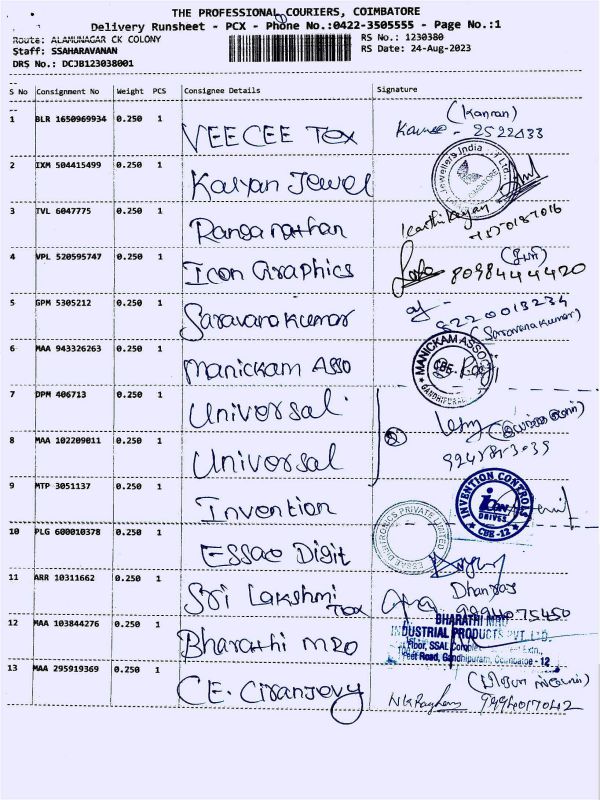 THE PROFESSIONAL COURIERS, COIMBATORE
Delivery Runsheet - PCX - Phone No.:0422-3505555 - Page No.:1
Route: ALAMUNAGAR CK COLONY
RS No.: 1230380
Staff: SSAHARAVANAN
RS Date: 24-Aug-2023
DRS No.: DCJB123038001
S No Consignment No Weight PCS Consignee Details Signature
(Kannan)
1 BLR 1650969934 0.250 1 VEECEE Tex - 2522433
2 IXM 504415499 0.250 1 Kalyan Jewel
Jewellers India
COIMBATORE
3 TVL 6047775 0.250 1 Ranganathan Karthikeyan
4 VPL 520595747 0.250 1 Icon Graphics 8098444420
5 GPM 5305212 0.250 1 Saravanakumar 8220013234
(Saravanakumar)
6 MAA 943326263 0.250 1 Manickam Asso
MANICKAM ASSO
CBE
GANDHIPURAM
7 DPM 406713 0.250 1 Universal
8 MAA 102209011 0.250 1 Universal
9 MTP 3051137 0.250 1 Invention
INVENTION CONTROLS
icon
DRIVES
CBE -12
10 PLG 600010378 0.250 1 Essae Digit
PRIVATE LIMITED
11 ARR 10311662 0.250 1 Sri Lakshmi Tex Dhanraj
9994075450
12 MAA 103844276 0.250 1 Bharathi MRO
BHARATHI MRO
INDUSTRIAL PRODUCTS PVT. LTD.
Floor, SSAL Complex Extn.,
Feet Road, Gandhipuram, Coimbatore - 12
13 MAA 295919369 0.250 1 C.E. Ciranjevy
NK Raghav 9994017042